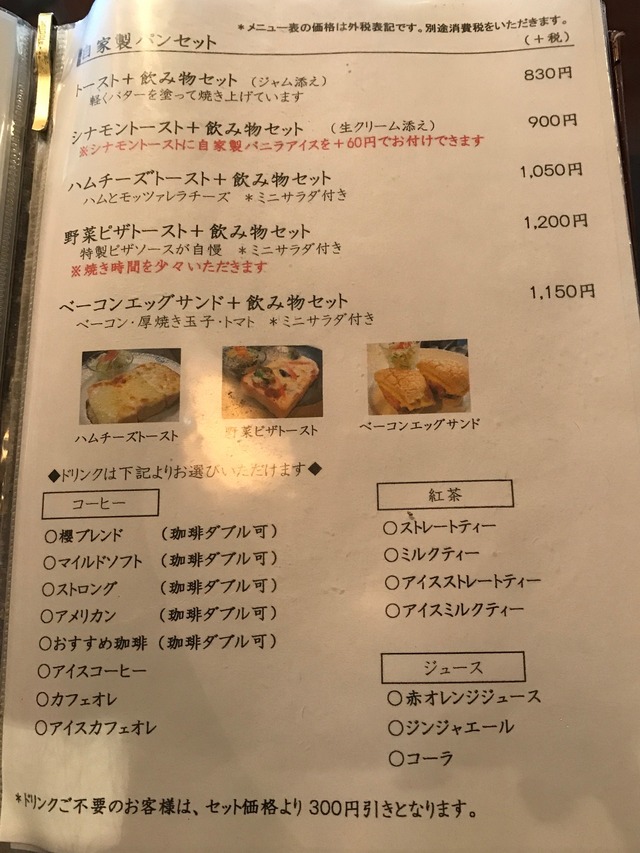 *メニュー表の価格は外税表記です。別途消費税をいただきます。
自家製パンセット (+税)
トースト+飲み物セット (ジャム添え) 830円
軽くバターを塗って焼き上げています
シナモントースト+飲み物セット (生クリーム添え) 900円
※シナモントーストに自家製バニラアイスを+60円でお付けできます
ハムチーズトースト+飲み物セット 1,050円
ハムとモッツァレラチーズ *ミニサラダ付き
野菜ピザトースト+飲み物セット 1,200円
特製ピザソースが自慢 *ミニサラダ付き
※焼き時間を少々いただきます
ベーコンエッグサンド+飲み物セット 1,150円
ベーコン・厚焼き玉子・トマト *ミニサラダ付き
ハムチーズトースト 野菜ピザトースト ベーコンエッグサンド
◆ドリンクは下記よりお選びいただけます◆
コーヒー
○櫻ブレンド (珈琲ダブル可)
○マイルドソフト (珈琲ダブル可)
○ストロング (珈琲ダブル可)
○アメリカン (珈琲ダブル可)
○おすすめ珈琲 (珈琲ダブル可)
○アイスコーヒー
○カフェオレ
○アイスカフェオレ
紅茶
○ストレートティー
○ミルクティー
○アイスストレートティー
○アイスミルクティー
ジュース
○赤オレンジジュース
○ジンジャエール
○コーラ
*ドリンクご不要のお客様は、セット価格より300円引きとなります。